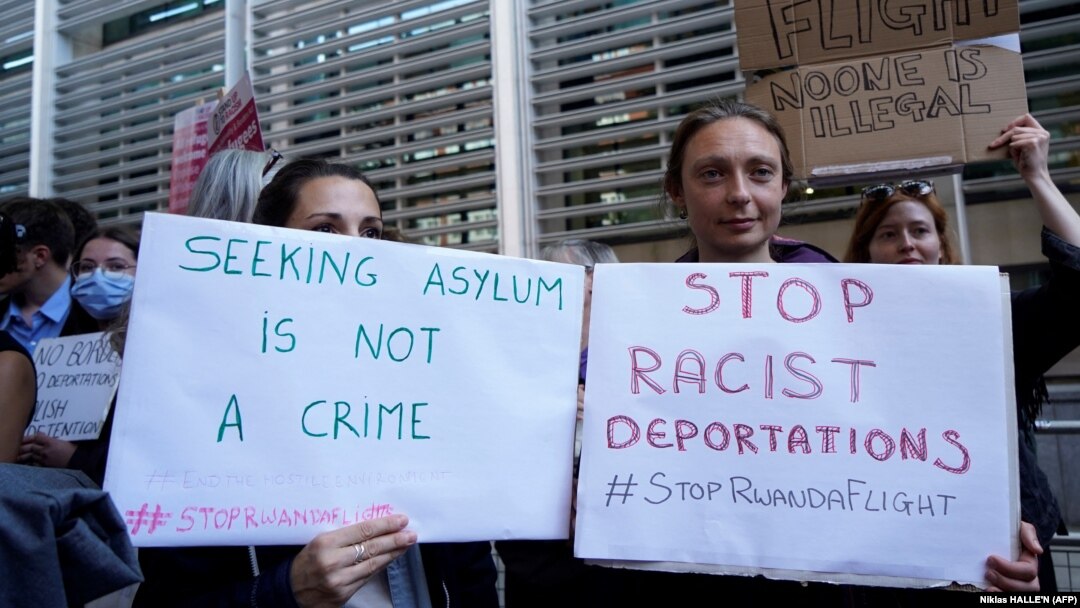 FLIGHT
NOONE IS
ILLEGAL
SEEKING ASYLUM
iS NOT
A CRIME
#ENDTHEHOSTILEENVIRONMENT
#STOPRWANDAFLIGHT
STOP
RACIST
DEPORTATIONS
#STOPRWANDAFLIGHT
NO BORDE
DEPORTATIONS
LISH
DETENTION
Niklas HALLE'N (AFP)